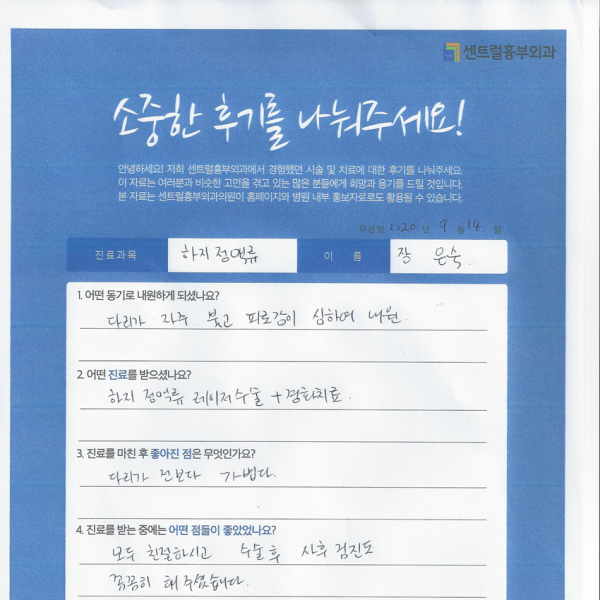 센트럴흉부외과
소중한 후기를 나눠주세요!
안녕하세요! 저희 센트럴흉부외과에서 경험했던 시술 및 치료에 대한 후기를 나눠주세요.
이 자료는 여러분과 비슷한 고민을 겪고 있는 많은 분들에게 희망과 용기를 드릴 것입니다.
본 자료는 센트럴흉부외과의원이 홈페이지와 병원 내부 홍보자료로도 활용될 수 있습니다.
작성일 2020 년 9 월 14 일
진료과목 하지정맥류 이 름 장 은숙.
1. 어떤 동기로 내원하게 되셨나요?
다리가 자주 붓고 피로감이 심하여 내원.
2. 어떤 진료를 받으셨나요?
하지 정맥류 레이저수술 + 경화치료.
3. 진료를 마친 후 좋아진 점은 무엇인가요?
다리가 전보다 가볍다.
4. 진료를 받는 중에는 어떤 점들이 좋았었나요?
모두 친절하시고 수술 후 사후 검진도
꼼꼼히 해 주셨습니다.